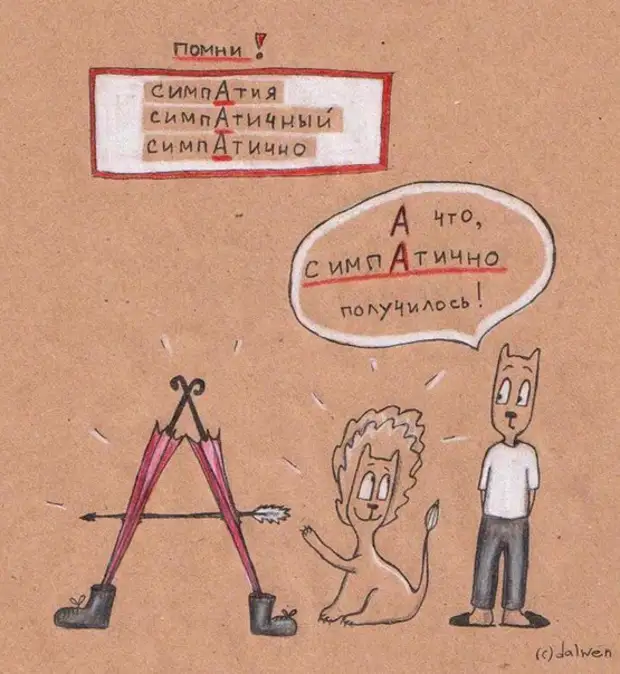 Помни!
симпАтия
симпАтичный
симпАтично
А что,
симпАтично
получилось!
(c)dalwen